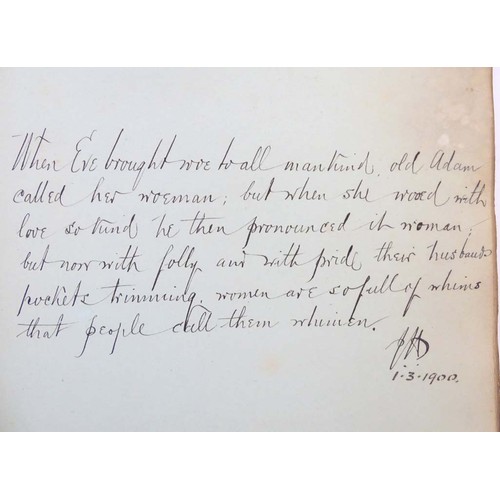 When Eve brought woe to all mankind, old Adam
called her woeman; but when she wooed with
love so kind he then pronounced it woman;
but now with folly and with pride, their husbands
pockets trimming, women are so full of whims
that people call them whimen.
1-3-1900.